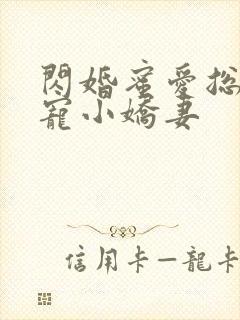 閃婚蜜愛总
寵小嬌妻
信用卡—龍卡